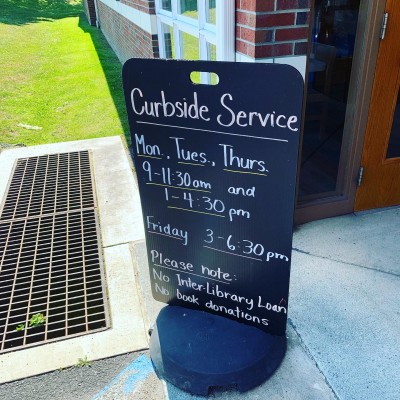 Curbside Service
Mon., Tues., Thurs.
9-11:30am and
1-4:30pm
Friday 3-6:30pm
Please note:
No Inter-Library Loan
No book donations